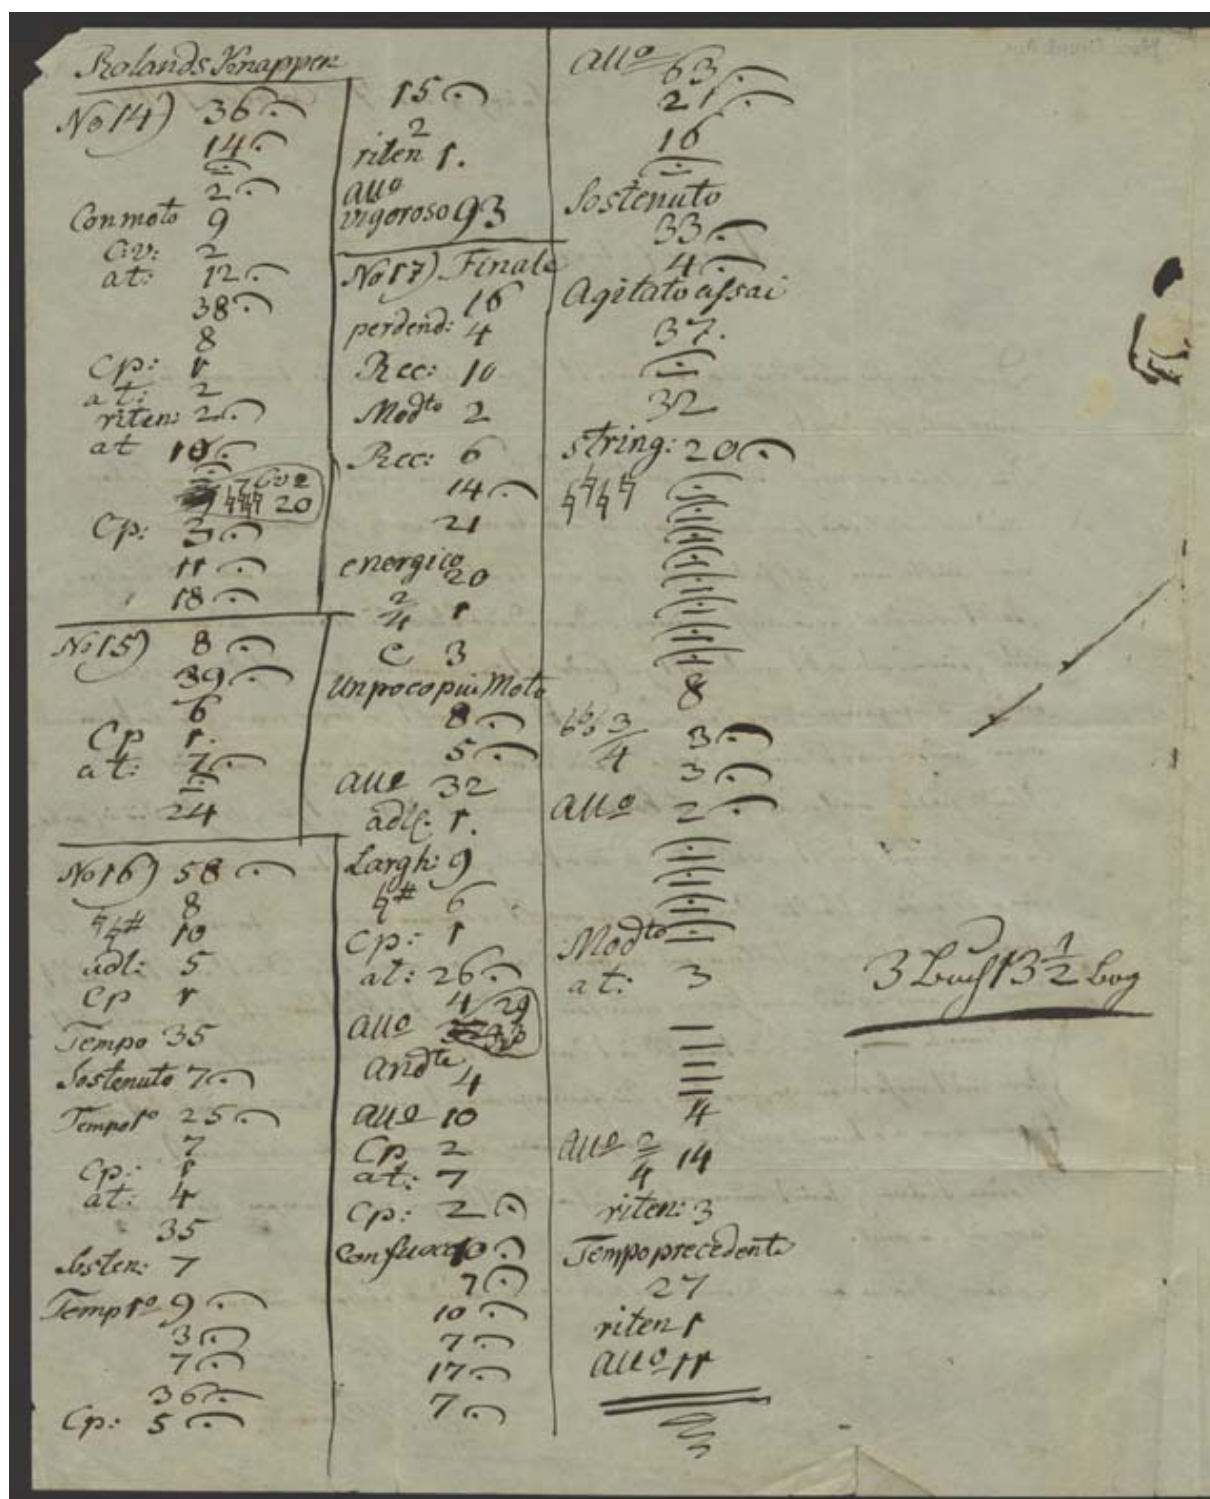 Rolands Knappen
No 14) 36 𝄐
14 𝄐
𝄐
2 𝄐
Con moto 9
Civ: 2
at: 12 𝄐
38 𝄐
8
Cp: 1
at: 2
riten: 2 𝄐
at 10 𝄐
𝄐
♮♮♮ 20
Cp: 3 𝄐
11 𝄐
18 𝄐
No 15) 8 𝄐
39 𝄐
6
Cp 1.
at: 7 𝄐
𝄐
24
No 16) 58 𝄐
8
♮♮# 10
adl: 5
Cp 1
Tempo 35
Sostenuto 7 𝄐
Tempo 1º 25 𝄐
7
Cp: 1
at: 4
35
Sosten: 7
Temp 1º 9 𝄐
3 𝄐
7 𝄐
36 𝄐
Cp: 5 𝄐
15 𝄐
2
riten 1.
Allº
vigoroso 93
No 17) Finale
16
perdend: 4
Rec: 10
Modto 2
Rec: 6
14 𝄐
21
energico
20
2/4 1
C 3
Un poco piu Moto
8 𝄐
5 𝄐
Allº 32
adl: 1.
Largh: 9
♮# 6
Cp: 1
at: 26 𝄐
4 29
Allº
Andte 4
Allº 10
Cp 2
at: 7
Cp: 2 𝄐
Con fuoco 10 𝄐
7 𝄐
10 𝄐
7 𝄐
17 𝄐
7 𝄐
Allº 63 𝄐
21 𝄐
16
𝄐
Sostenuto
33 𝄐
4 𝄐
Agitato assai
37.
𝄐
32
string: 20 𝄐
♮♮♮♮
8
♭♭♭ 3/4 3 𝄐
3 𝄐
Allº 2 𝄐
Modto
at: 3
4
Allº 2/4 14
riten: 3
Tempo precedente
27
riten 1
Allº 11
3 Buch 13 1/2 bog